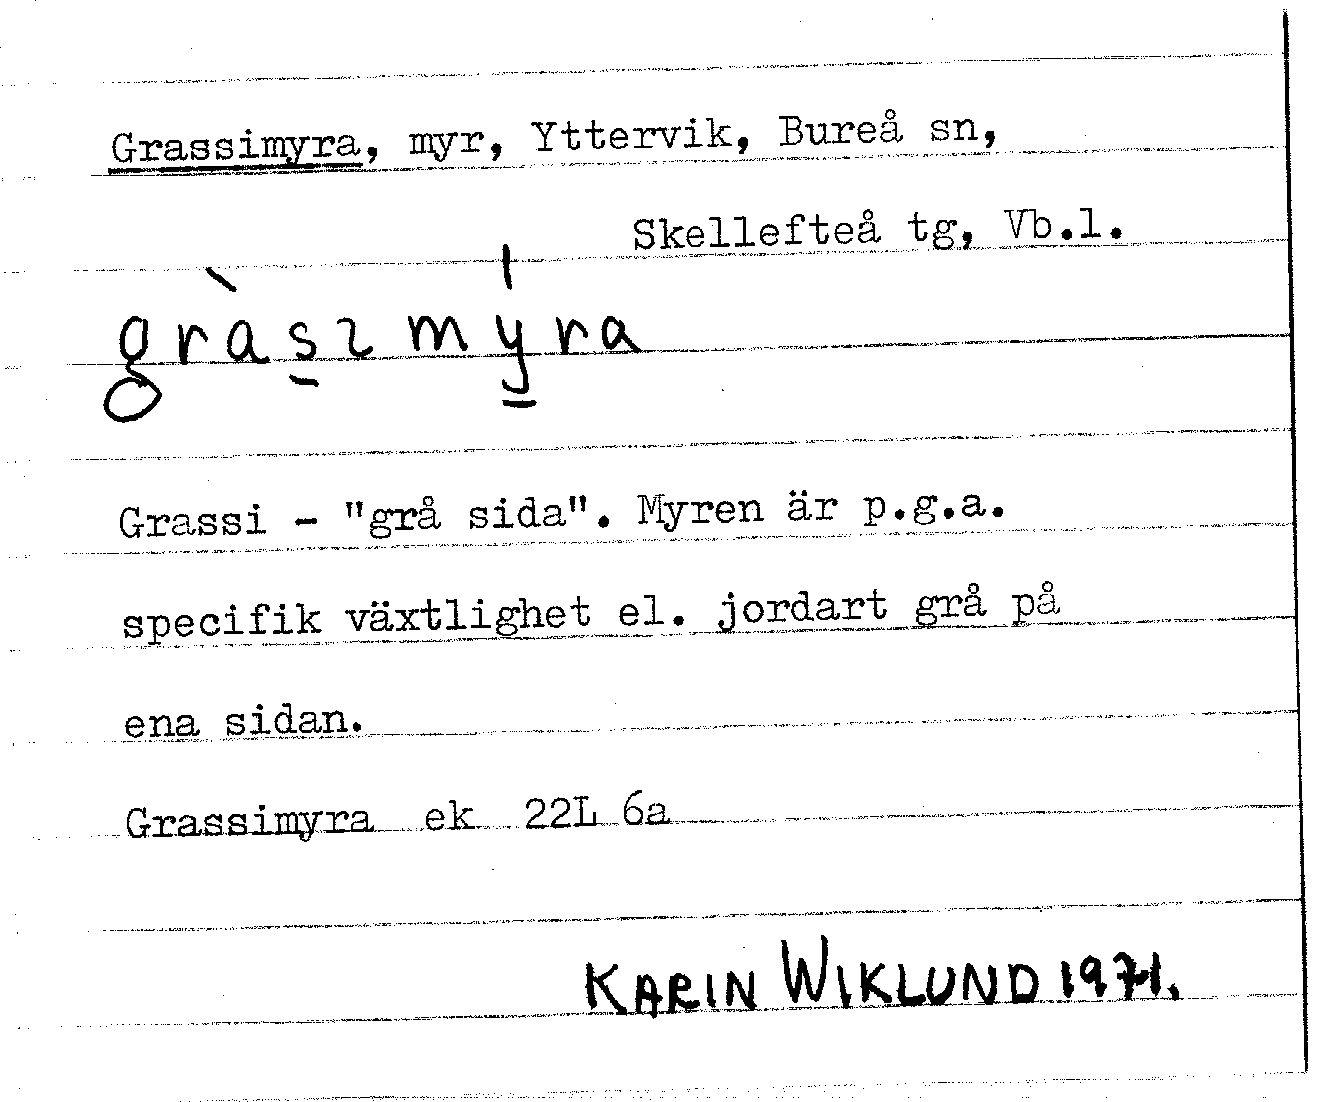 Grassimyra, myr, Yttervik, Bureå sn,
Skellefteå tg, Vb.l.
gràsımyra
Grassi - "grå sida". Myren är p.g.a.
specifik växtlighet el. jordart grå på
ena sidan.
Grassimyra ek 22L 6a
KARIN WIKLUND 1971.